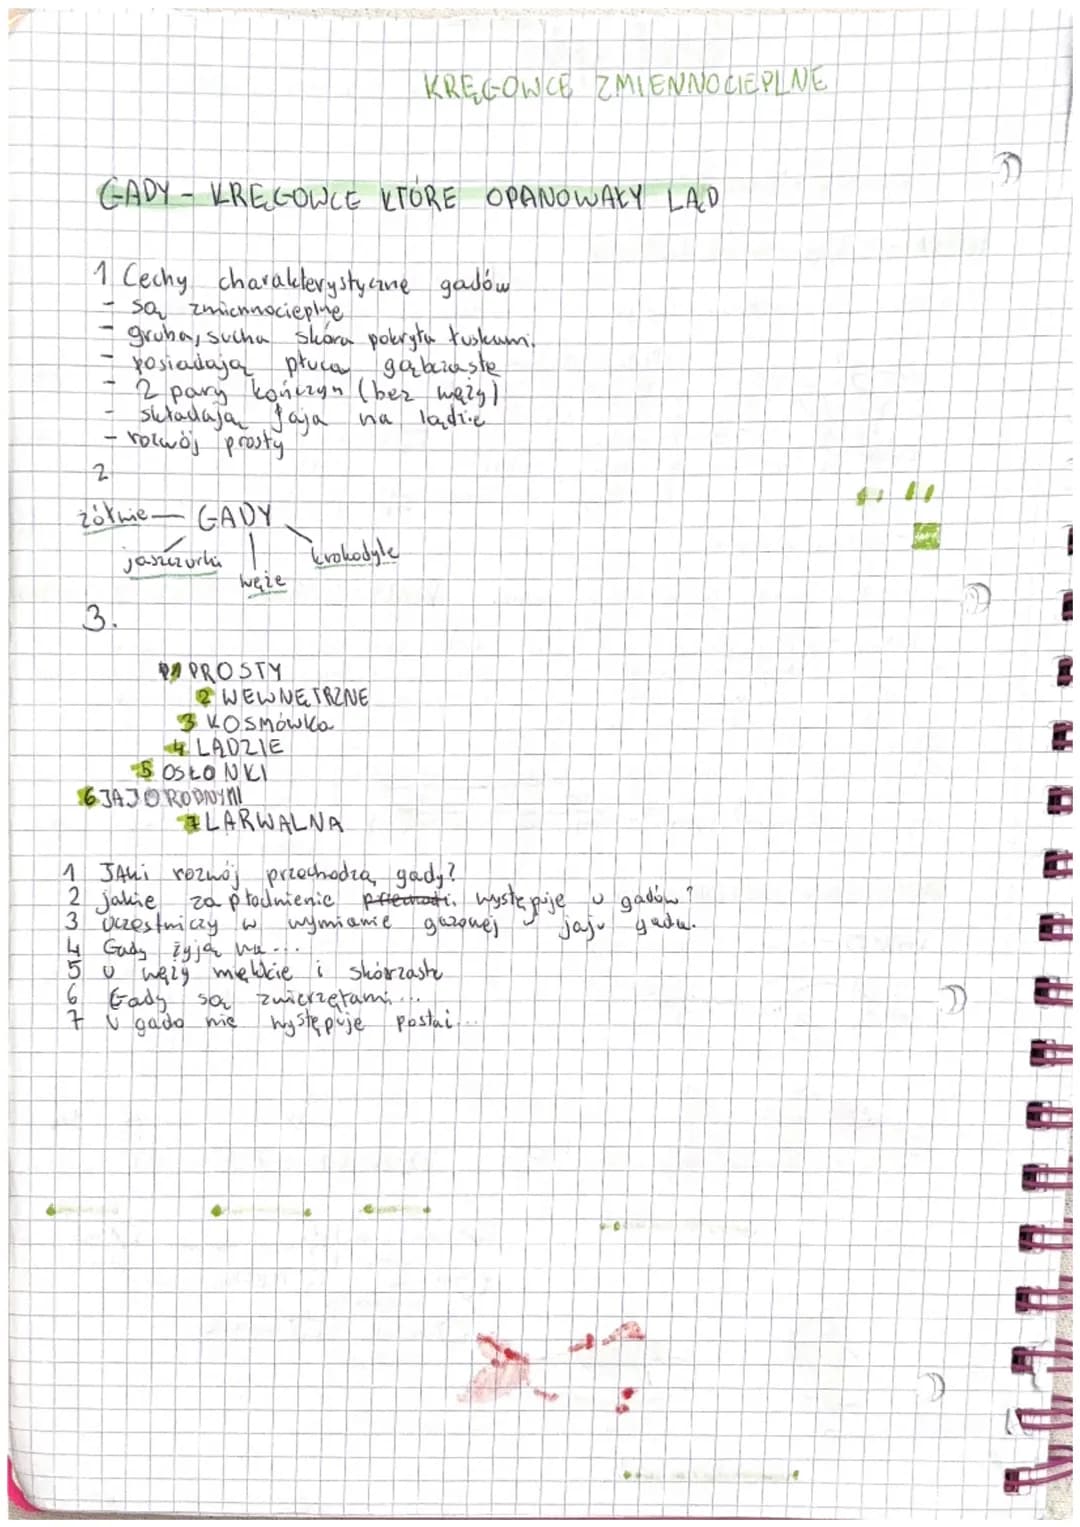 KRĘGOWCE ZMIENNOCIEPLNE
GADY - KRĘGOWCE KTÓRE OPANOWAŁY LĄD
1 Cechy charakterystyczne gadów
- są zmiennocieplne
- gruba, sucha skóra pokryta łuskami.
- posiadają płuca gąbczaste
- 2 pary kończyn (bez węży)
- składają jaja na lądzie
- rozwój prosty
2
żółwie — GADY
jaszczurki
krokodyle
węże
3.
1 PROSTY
2 WEWNĘTRZNE
3 KOSMÓWKa
4 LĄDZIE
5 OSŁONKI
6 JAJORODNYMI
7 LARWALNA
1 JAki rozwój przechodzą gady?
2 jakie zapłodnienie występuje u gadów?
3 Uczestniczy w wymianie gazowej w jaju gada.
4 Gady żyją na ...
5 U węży miękkie i skórzaste
6 Gady są zwierzętami ...
7 U gado nie występuje postać ...